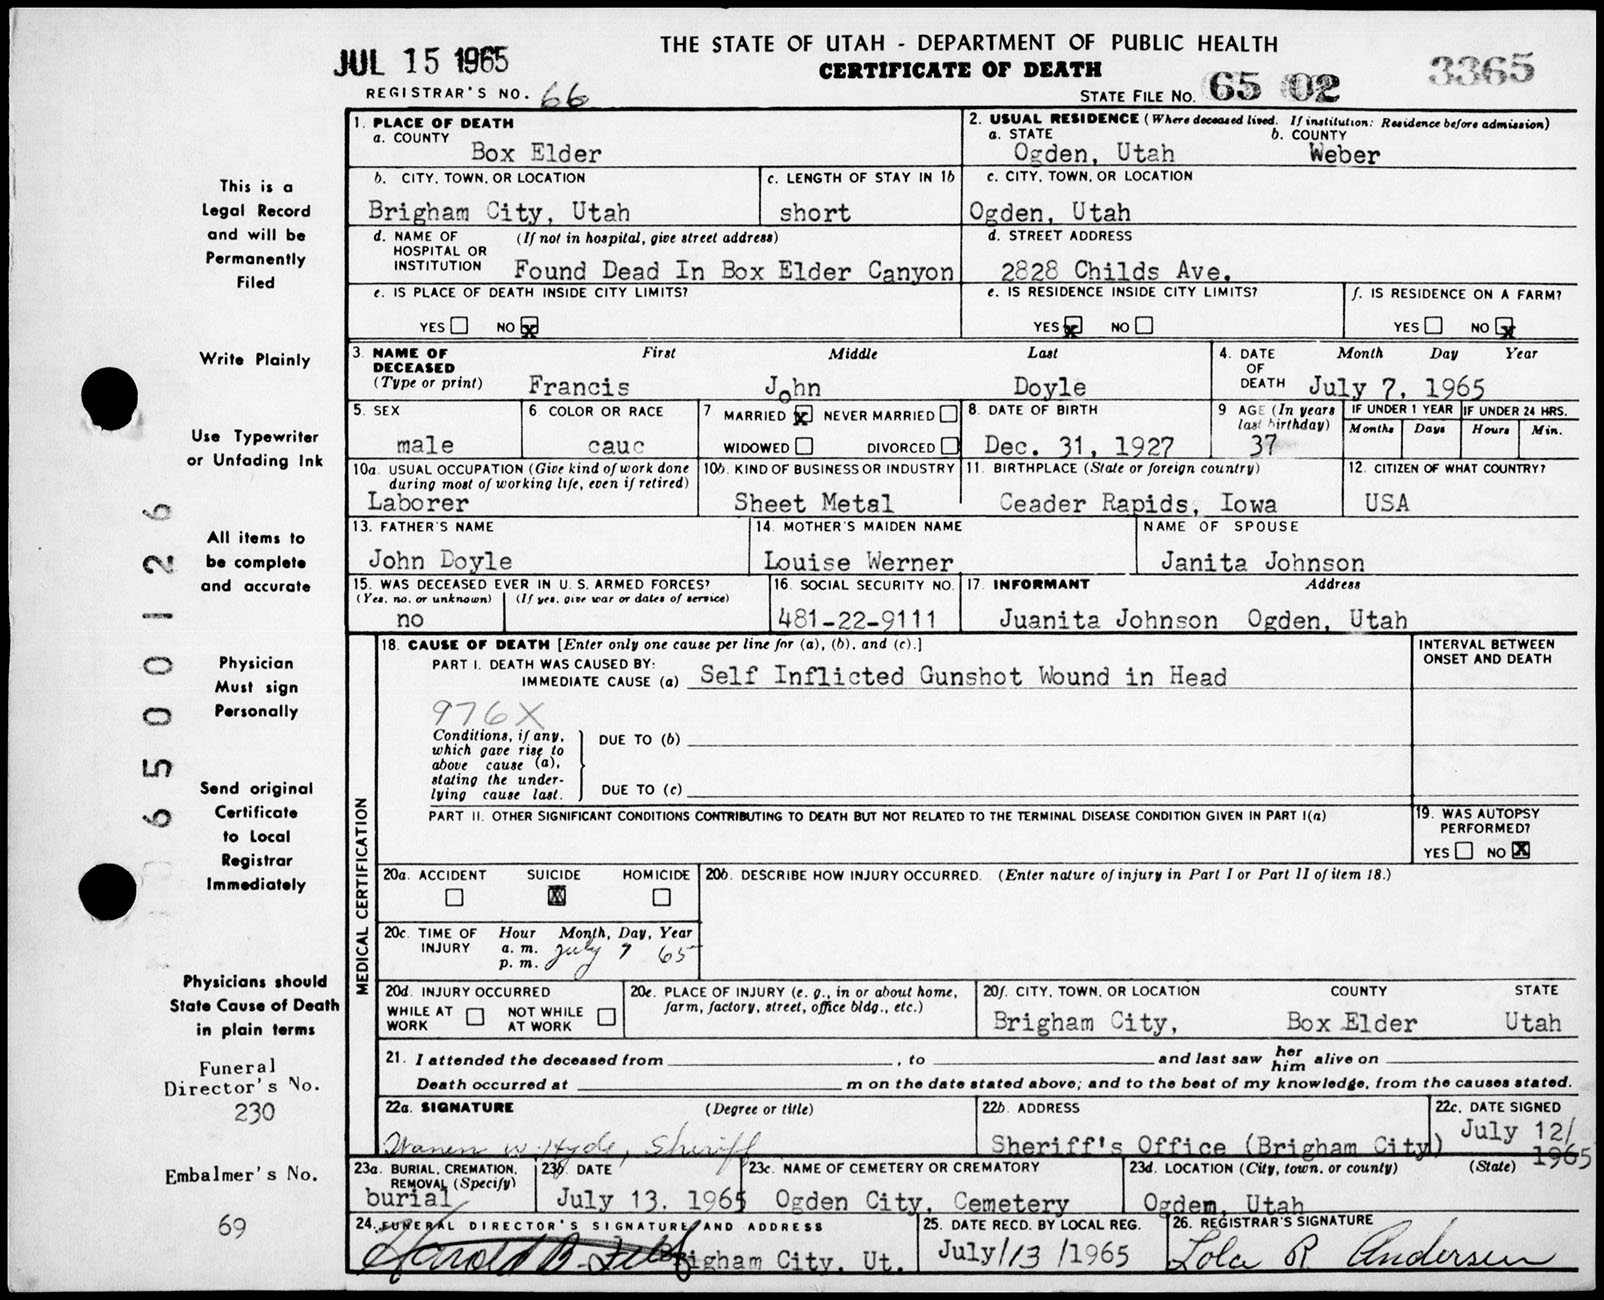 THE STATE OF UTAH - DEPARTMENT OF PUBLIC HEALTH
CERTIFICATE OF DEATH
JUL 15 1965
REGISTRAR'S NO. 66
STATE FILE NO. 65 02
3365
This is a
Legal Record
and will be
Permanently
Filed
Write Plainly
Use Typewriter
or Unfading Ink
All items to
be complete
and accurate
Physician
Must sign
Personally
Send original
Certificate
to Local
Registrar
Immediately
Physicians should
State Cause of Death
in plain terms
Funeral
Director's No.
230
Embalmer's No.
69
6 5 0 0 1 2 6
1. PLACE OF DEATH
a. COUNTY
Box Elder
2. USUAL RESIDENCE (Where deceased lived. If institution: Residence before admission)
a. STATE b. COUNTY
Ogden, Utah Weber
b. CITY, TOWN, OR LOCATION
Brigham City, Utah
c. LENGTH OF STAY IN 1b
short
c. CITY, TOWN, OR LOCATION
Ogden, Utah
d. NAME OF (If not in hospital, give street address)
HOSPITAL OR
INSTITUTION Found Dead In Box Elder Canyon
d. STREET ADDRESS
2828 Childs Ave.
e. IS PLACE OF DEATH INSIDE CITY LIMITS?
YES NO X
e. IS RESIDENCE INSIDE CITY LIMITS?
YES X NO
f. IS RESIDENCE ON A FARM?
YES NO X
3. NAME OF First Middle Last
DECEASED
(Type or print) Francis John Doyle
4. DATE Month Day Year
OF
DEATH July 7, 1965
5. SEX
male
6 COLOR OR RACE
cauc
7 MARRIED X NEVER MARRIED
WIDOWED DIVORCED
8. DATE OF BIRTH
Dec. 31, 1927
9 AGE (In years
last birthday)
37
IF UNDER 1 YEAR IF UNDER 24 HRS.
Months Days Hours Min.
10a. USUAL OCCUPATION (Give kind of work done
during most of working life, even if retired)
Laborer
10b. KIND OF BUSINESS OR INDUSTRY
Sheet Metal
11. BIRTHPLACE (State or foreign country)
Ceader Rapids, Iowa
12. CITIZEN OF WHAT COUNTRY?
USA
13. FATHER'S NAME
John Doyle
14. MOTHER'S MAIDEN NAME
Louise Werner
NAME OF SPOUSE
Janita Johnson
15. WAS DECEASED EVER IN U. S. ARMED FORCES?
(Yes, no, or unknown) (If yes, give war or dates of service)
no
16. SOCIAL SECURITY NO.
481-22-9111
17. INFORMANT Address
Juanita Johnson Ogden, Utah
MEDICAL CERTIFICATION
18. CAUSE OF DEATH [Enter only one cause per line for (a), (b), and (c).]
INTERVAL BETWEEN
ONSET AND DEATH
PART I. DEATH WAS CAUSED BY:
IMMEDIATE CAUSE (a) Self Inflicted Gunshot Wound in Head
976X
Conditions, if any,
which gave rise to
above cause (a),
stating the under-
lying cause last.
DUE TO (b)
DUE TO (c)
PART II. OTHER SIGNIFICANT CONDITIONS CONTRIBUTING TO DEATH BUT NOT RELATED TO THE TERMINAL DISEASE CONDITION GIVEN IN PART I(a)
19. WAS AUTOPSY
PERFORMED?
YES NO X
20a. ACCIDENT SUICIDE HOMICIDE
X
20b. DESCRIBE HOW INJURY OCCURRED. (Enter nature of injury in Part I or Part II of item 18.)
20c. TIME OF Hour Month, Day, Year
INJURY a. m. July 7 65
p. m.
20d. INJURY OCCURRED
WHILE AT NOT WHILE
WORK AT WORK
20e. PLACE OF INJURY (e. g., in or about home,
farm, factory, street, office bldg., etc.)
20f. CITY, TOWN, OR LOCATION COUNTY STATE
Brigham City, Box Elder Utah
21. I attended the deceased from , to and last saw her him alive on
Death occurred at m on the date stated above; and to the best of my knowledge, from the causes stated.
22a. SIGNATURE (Degree or title)
Warren W. Hyde, Sheriff
22b. ADDRESS
Sheriff's Office (Brigham City)
22c. DATE SIGNED
July 12/
1965
23a. BURIAL, CREMATION,
REMOVAL (Specify)
burial
23b. DATE
July 13. 1965
23c. NAME OF CEMETERY OR CREMATORY
Ogden City, Cemetery
23d. LOCATION (City, town, or county) (State)
Ogdem, Utah
24. FUNERAL DIRECTOR'S SIGNATURE AND ADDRESS
Harold B. Felt Brigham City. Ut.
25. DATE RECD. BY LOCAL REG.
July/13/1965
26. REGISTRAR'S SIGNATURE
Lola R Andersen